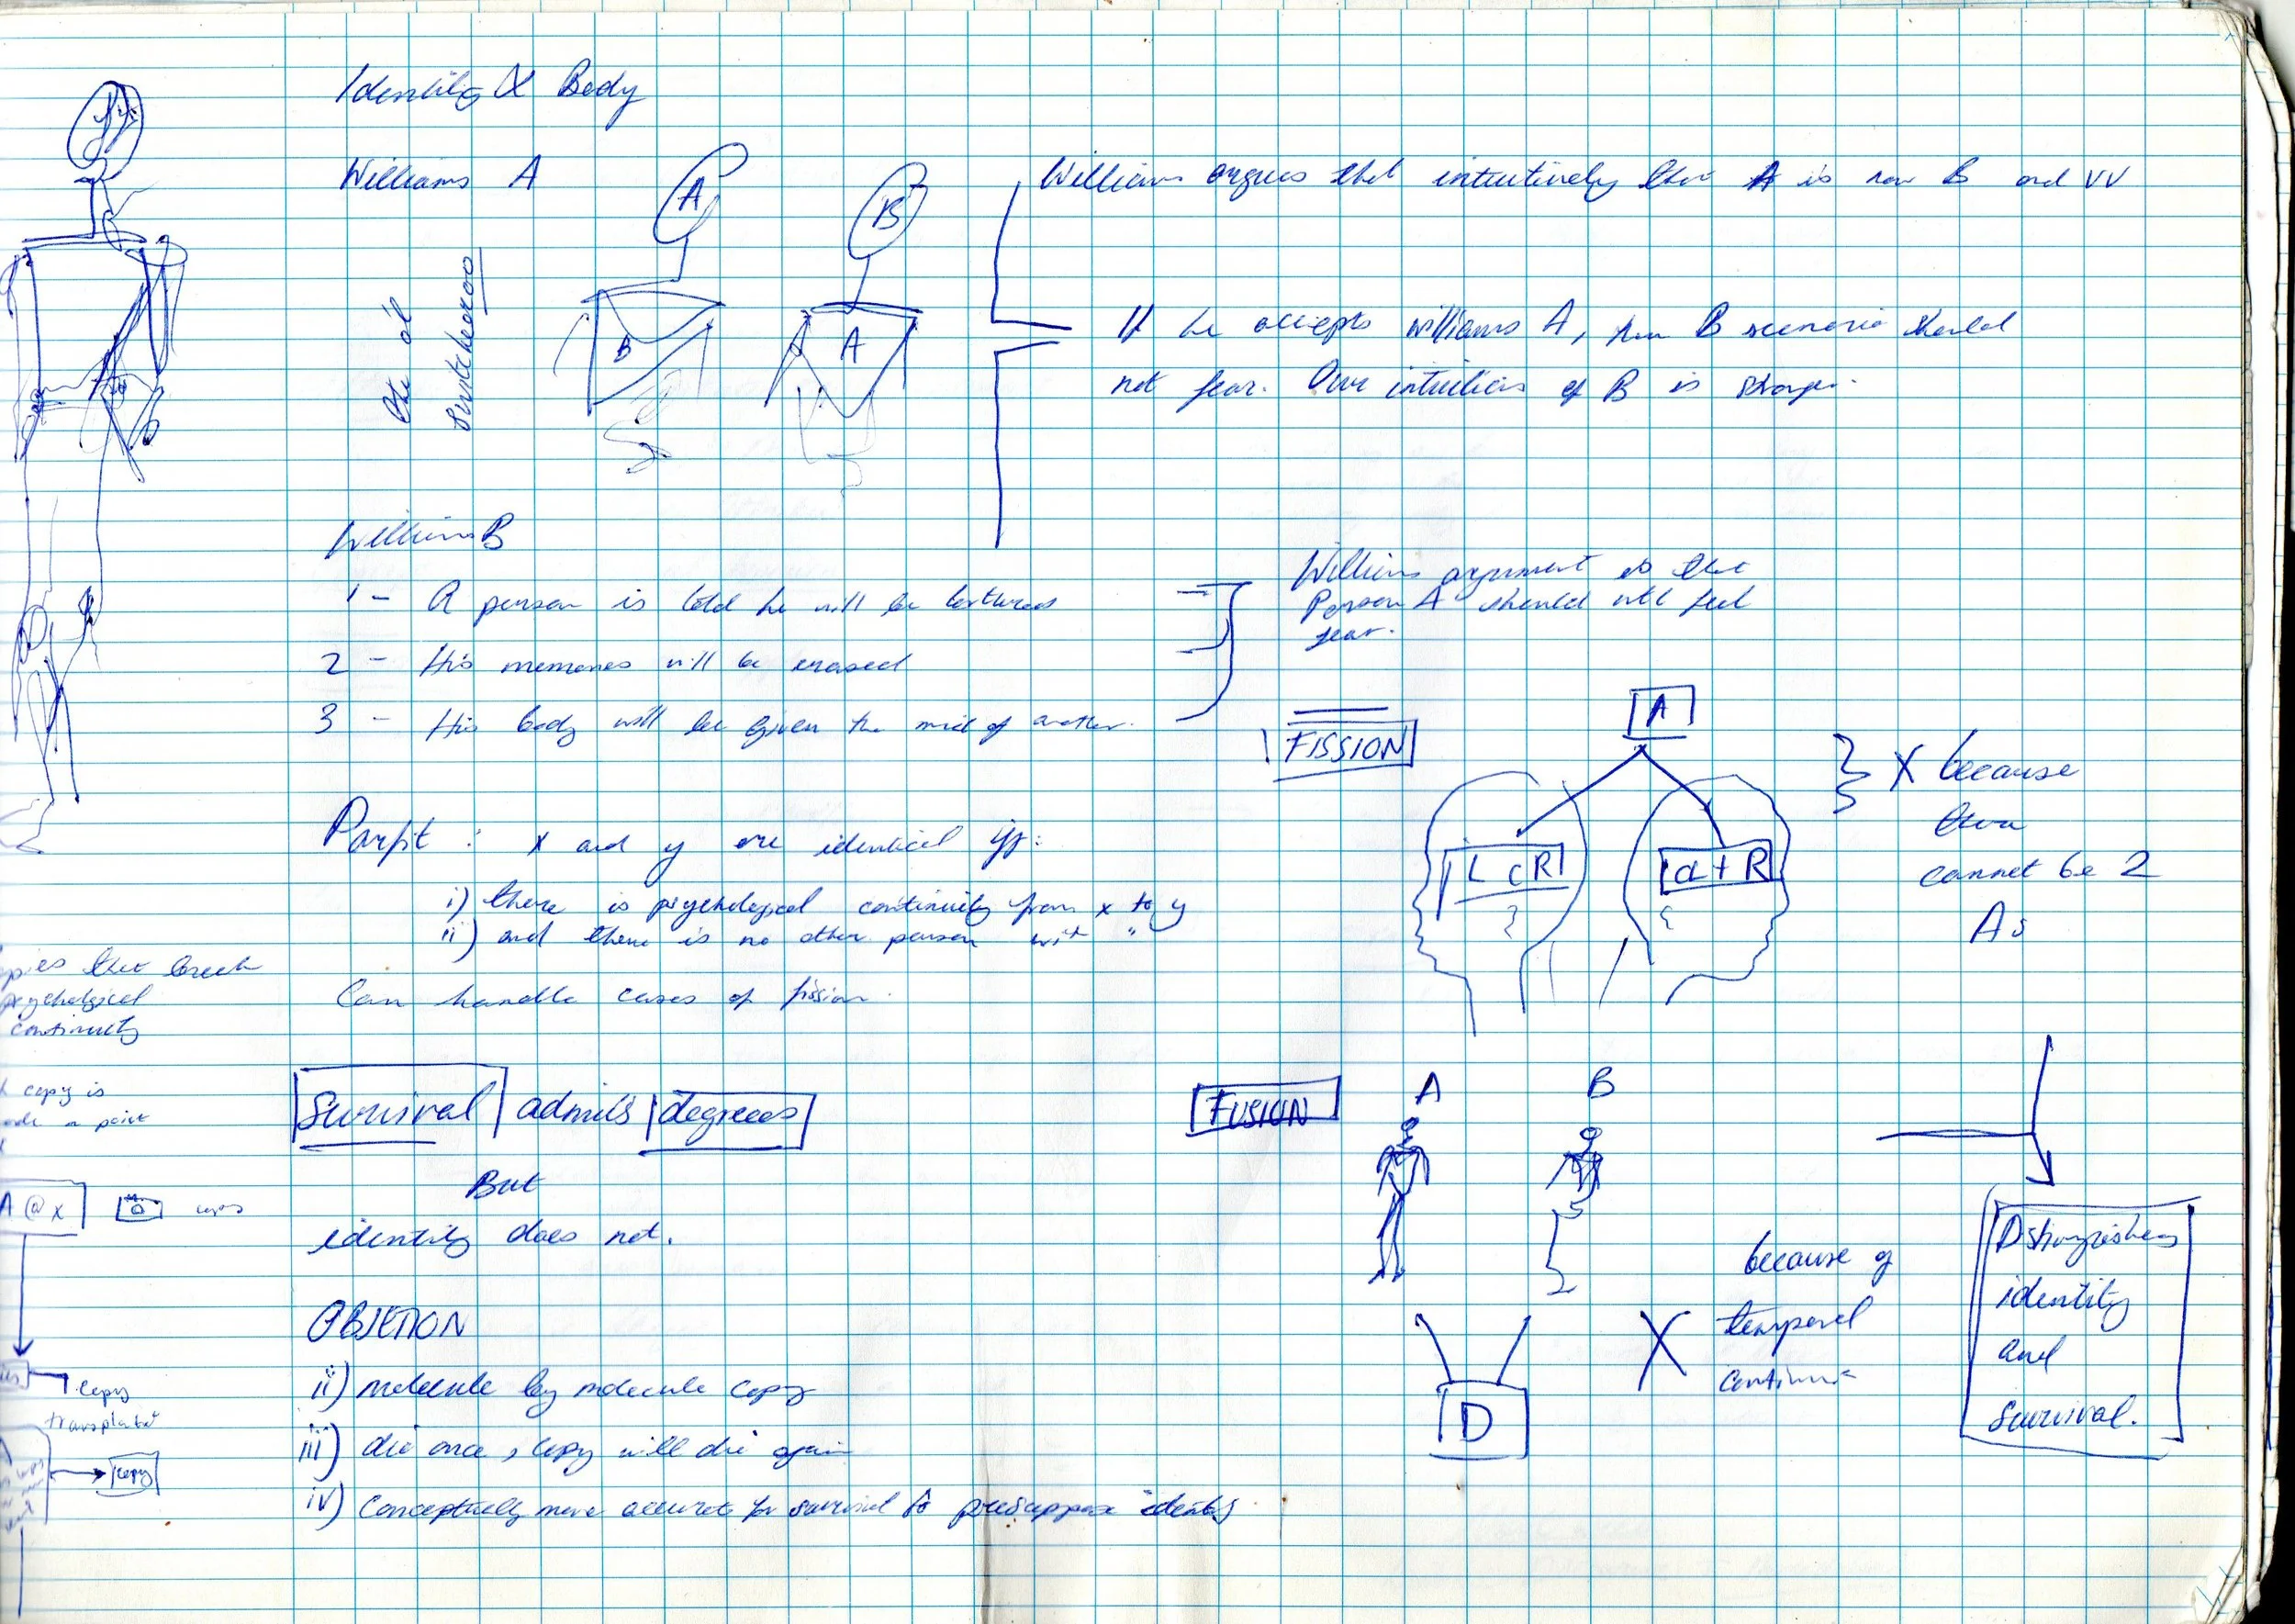 Identity & Body
Williams A
A
B
B
A
the ol'
switcheroo
Williams argues that intuitively that A is now B and VV
If he accepts williams A, then B scenario should
not fear. Our intuition of B is stronger.
Williams B
1 - A person is told he will be tortured
2 - His memories will be erased
3 - His body will be given the mind of another.
Williams argument is that
Person A should still feel
fear.
FISSION
A
X because
there
cannot be 2
As
Parfit : x and y are identical iff:
i) there is psychological continuity from x to y
ii) and there is no other person with "
Can handle cases of fission.
psychological
continuity
copy is
Survival admits degrees
But
identity does not.
FUSION
A
B
D
X
because of
temporal
Distinguishes
identity
and
survival.
A @ x
copy
copy
OBJETION
ii) molecule by molecule copy
iii) die once, copy will die again
iv) conceptually more accurate for survival to presuppose identity